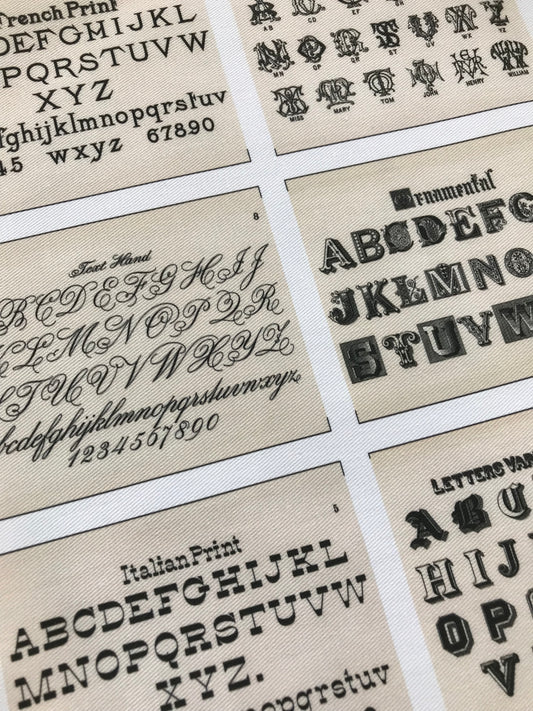 French Print
DEFGHIJKL
PQRSTUVW
XYZ
fghijklmnopqrstuv
45 wxyz 67890
AB CD EF GH
MN OP QR ST UV WX YZ
MISS MARY TOM JOHN HENRY WILLIAM
8
Text Hand
BCDEFGHIJ
KLMNOPQR
STUVWXYZ
abcdefghijklmnopqrstuvwxyz
1234567890
Ornamental
ABCDEFG
JKLMNO
STUVW
5
Italian Print
ABCDEFGHIJKL
MNOPQRSTUVW
XYZ.
nopqrstuv
7890
LETTERS
ABC
HIJ
OPQ
V